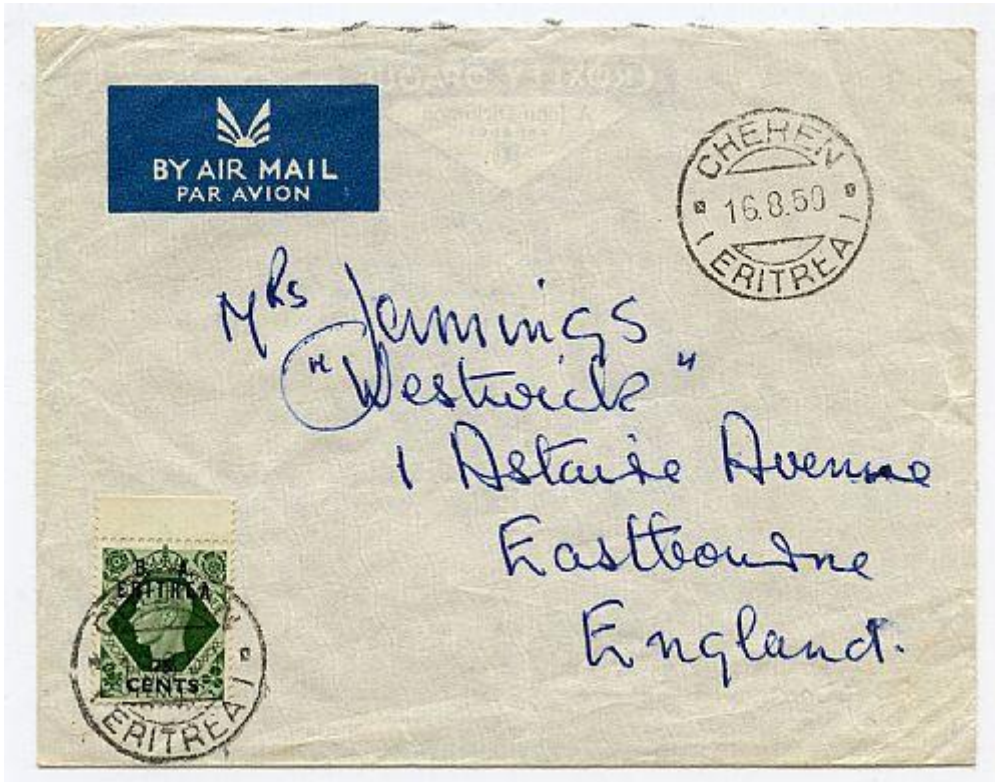 BY AIR MAIL
PAR AVION
CHEREN
16.8.50
ERITREA
Mrs Jennings
"Westwick"
1 Astaire Avenue
Eastbourne
England.
B. A.
ERITREA
CENTS
ERITREA